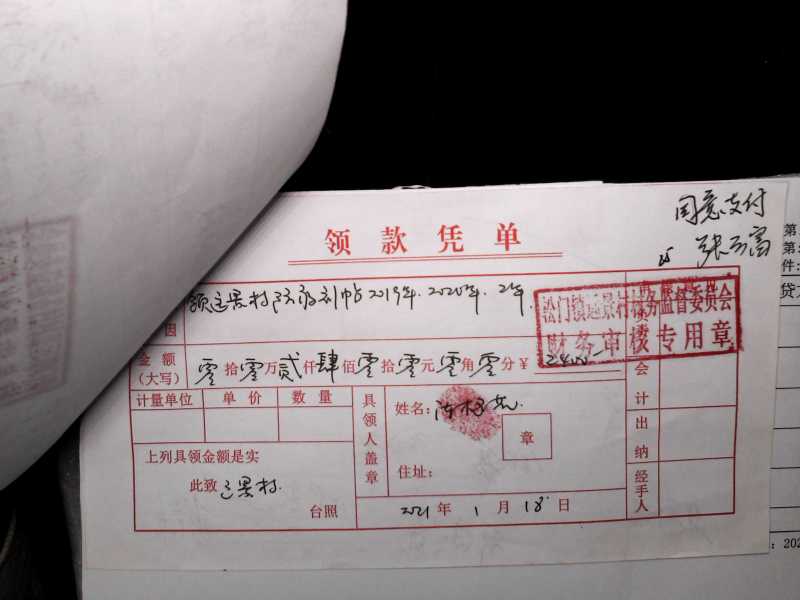 同意支付
第
第:
件:
领款凭单
领远景村防疫补帖2019年.2020年.2年.
松门镇远景村村务监督委员会
财务审核专用章
因
贷
金额
(大写)
零拾零万贰仟肆佰零拾零元零角零分¥2400
会计
计量单位 单价 数量
具领人盖章
姓名:
章
出纳
上列具领金额是实
此致 远景村.
台照
住址:
经手人
2021年1月18日
: 202